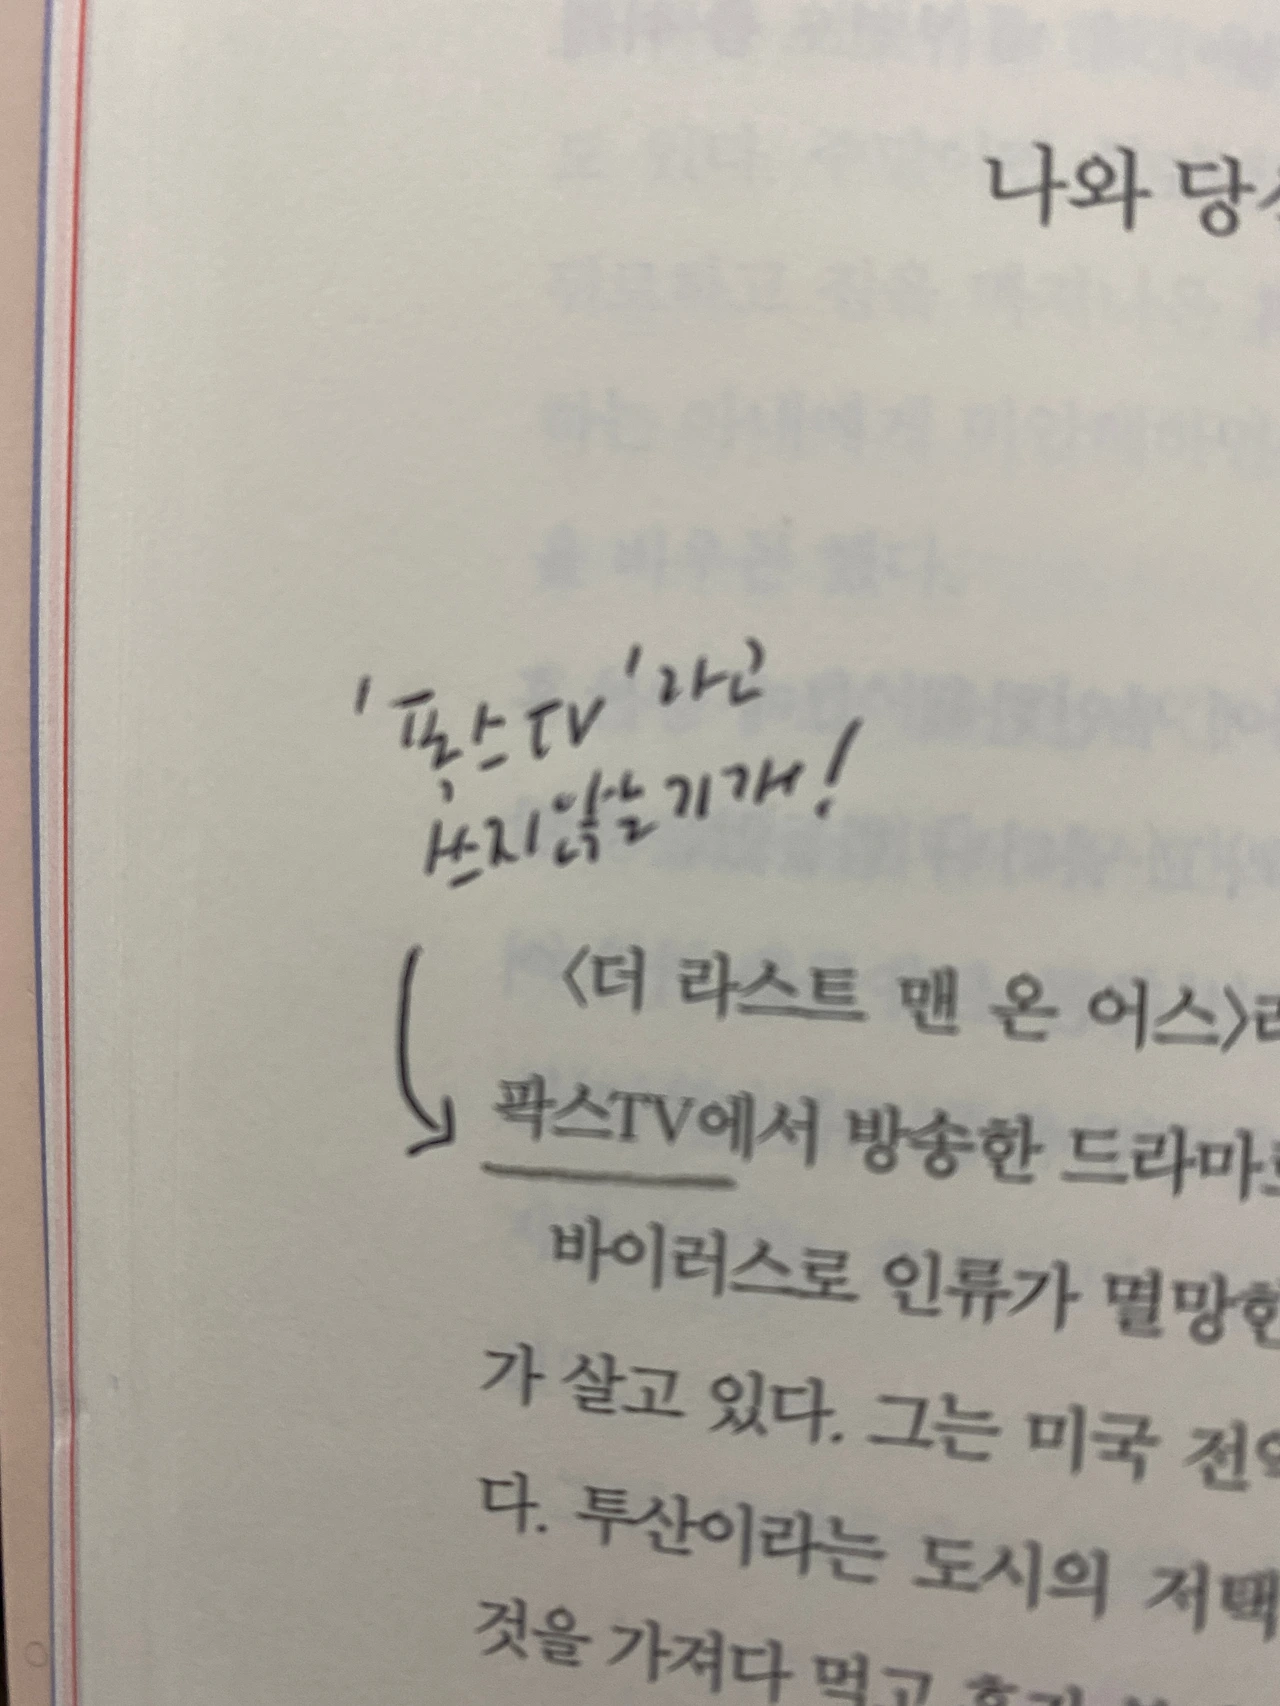 나와 당
'폭스TV'라고
쓰지 않는 기개!
〈더 라스트 맨 온 어스〉라
팍스TV에서 방송한 드라마로
바이러스로 인류가 멸망한
가 살고 있다. 그는 미국 전역
다. 투산이라는 도시의 저택
것을 가져다 먹고